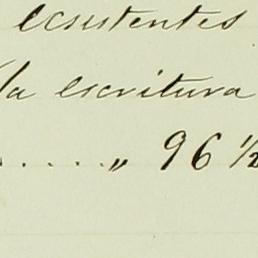 ecsistentes
la escritura
. . . . . „ 96 ½